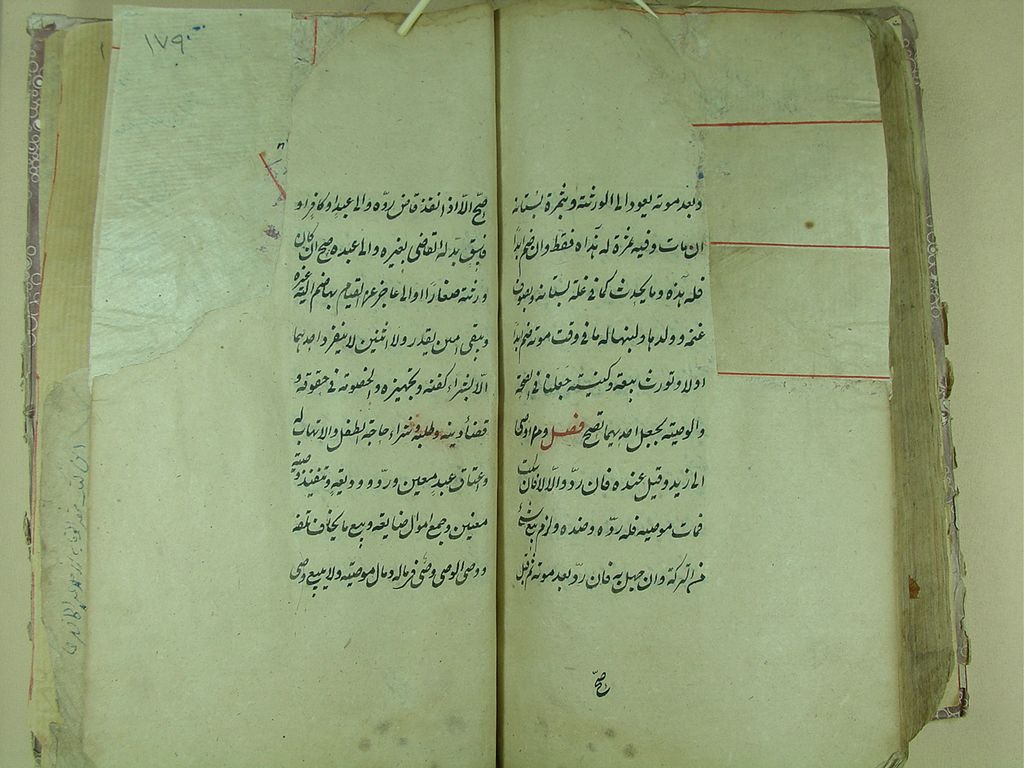 وبعد موته يعود الى الورثة وبثمرة بستانه
ان مات وفيه ثمرة له هذه فقط وان ضم ابدا
فله هذه وما يحدث كما فى غلة بستانه وبصوف
غنمه وولدها ولبنها له ما فى وقت موته ضم ابدا
اولا وتورث بيعة وكنيسة جعلتا فى الصحة
والوصية بجعل احديهما تصح فصل ومن اوصى
الى زيد وقبل عنده فان رد والا لا فان سكت
فمات موصيه فله رده وضده ولزم ببيع شئ
من التركة وان جهل به فان رد بعد موته ثم قبل
صح
صح الا اذا نفذ قاض رده والى عبد او كافر او
فاسق بدله القاضى بغيره والى عبده صح ان كان
ورثته صغارا والا والى عاجز عن القيام بها ضم اليه غيره
ويبقى امين يقدر ولا اثنين لا ينفرد احدهما
الا بشراء كفنه وتجهيزه والخصومة فى حقوقه و
قضاء دينه وطلبه وشراء حاجة الطفل والاتهاب له
واعتاق عبد معين ورد وديعة وتنفيذ وصية
معينين وجمع اموال ضايعة وبيع ما يخاف تلفه
ووصى الوصى وصى فى ماله ومال موصيه ولا يبيع وصى
١٧٩